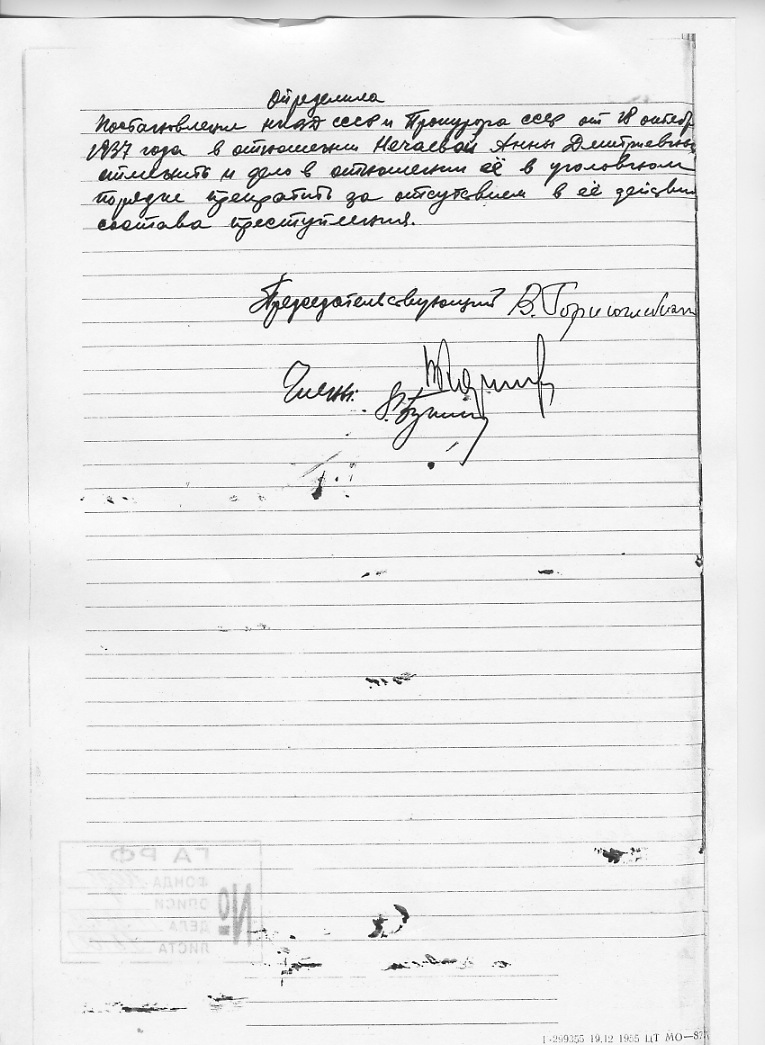 Определила
Постановление НКВД СССР и Прокурора СССР от 28 октябр
1937 года в отношении Нечаевой Анны Дмитриевны
отменить и дело в отношении её в уголовном
порядке прекратить за отсутствием в её действи
состава преступления.
Председательствующий В.
Члены:
ГА РФ
ФОНДА
ОПИСИ
ДЕЛА
ЛИСТА
№
Г-299355 19.12 1955 ЦТ МО—875